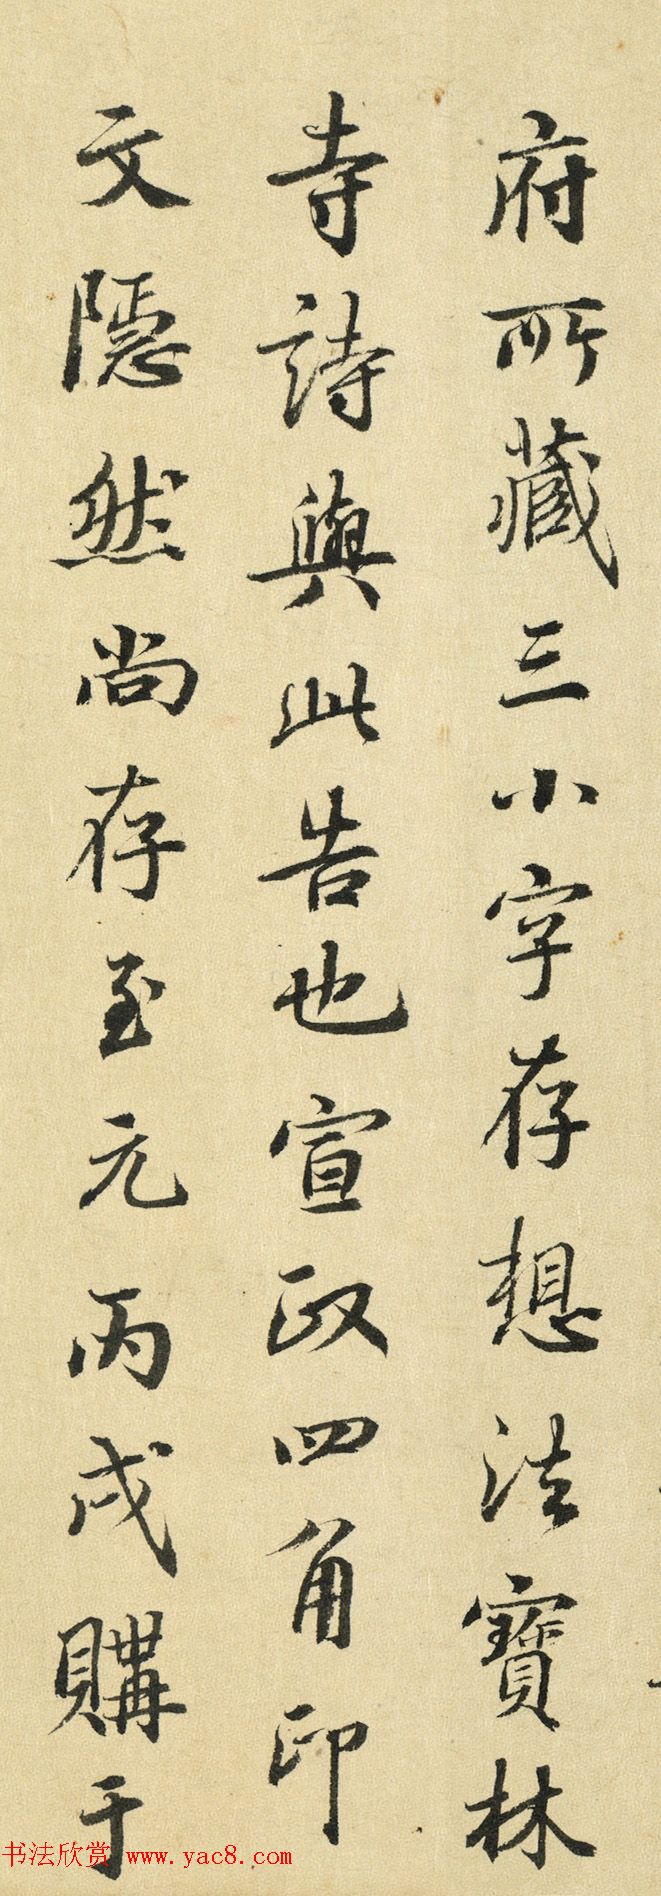 府所藏三小字存想法寶林
寺詩與此告也宣政四角印
文隱然尚存至元丙戌購于
书法欣赏 www.yac8.com